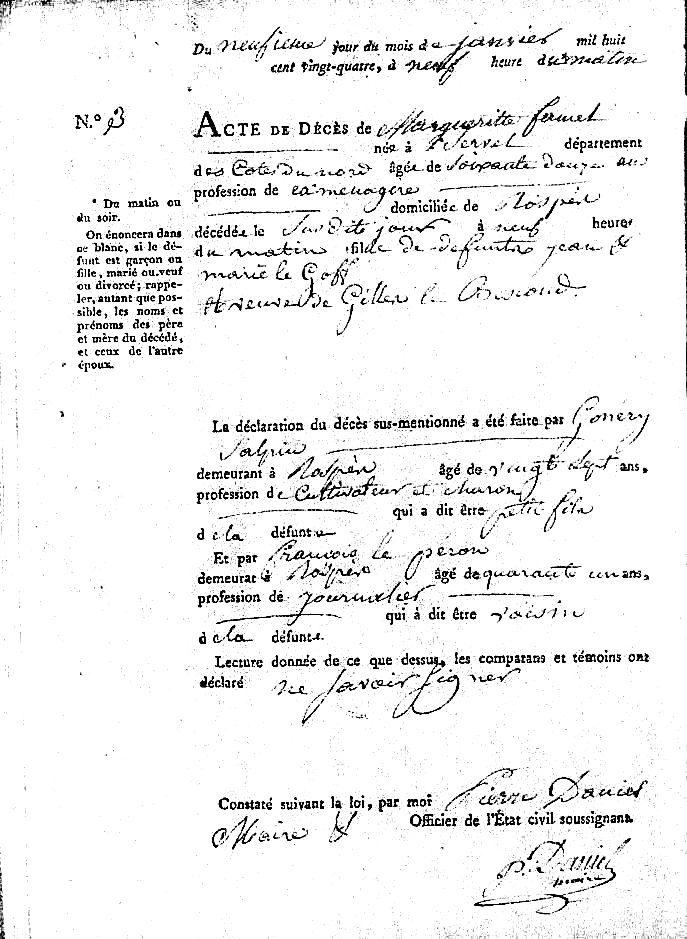 Du neufieme jour du mois de janvier mil huit
cent vingt-quatre, à neuf heure du matin
N.º 3
ACTE DE DÉCÈS de Margueritte
née à Servel département
des Cotes du nord âgée de Soixante douze ans
profession de menagere
domiciliée de Rospèz
décédée le Susdit jour à neuf heures
du matin fille de defunts jean &
marie le Goff
& veuve de Gilles le
* Du matin ou
du soir.
On énoncera dans
ce blanc, si le dé-
funt est garçon ou
fille, marié ou veuf
ou divorcé; rappe-
ler, autant que pos-
sible, les noms et
prénoms des père
et mère du décédé,
et ceux de l'autre
époux.
La déclaration du décès sus-mentionné a été faite par Gonery
Salpin
demeurant à Rospèz âgé de vingt Sept ans,
profession de Cultivateur et charon
qui a dit être petit fils
de la défunte
Et par francois le peron
demeurat à Rospèz âgé de quarante un ans,
profession de journalier
qui à dit être voisin
de la défunte.
Lecture donnée de ce que dessus, les comparans et témoins ont
déclaré ne savoir signer
Constaté suivant la loi, par moi Pierre Daniel
Maire & Officier de l'État civil soussignant.
p. Daniel
maire